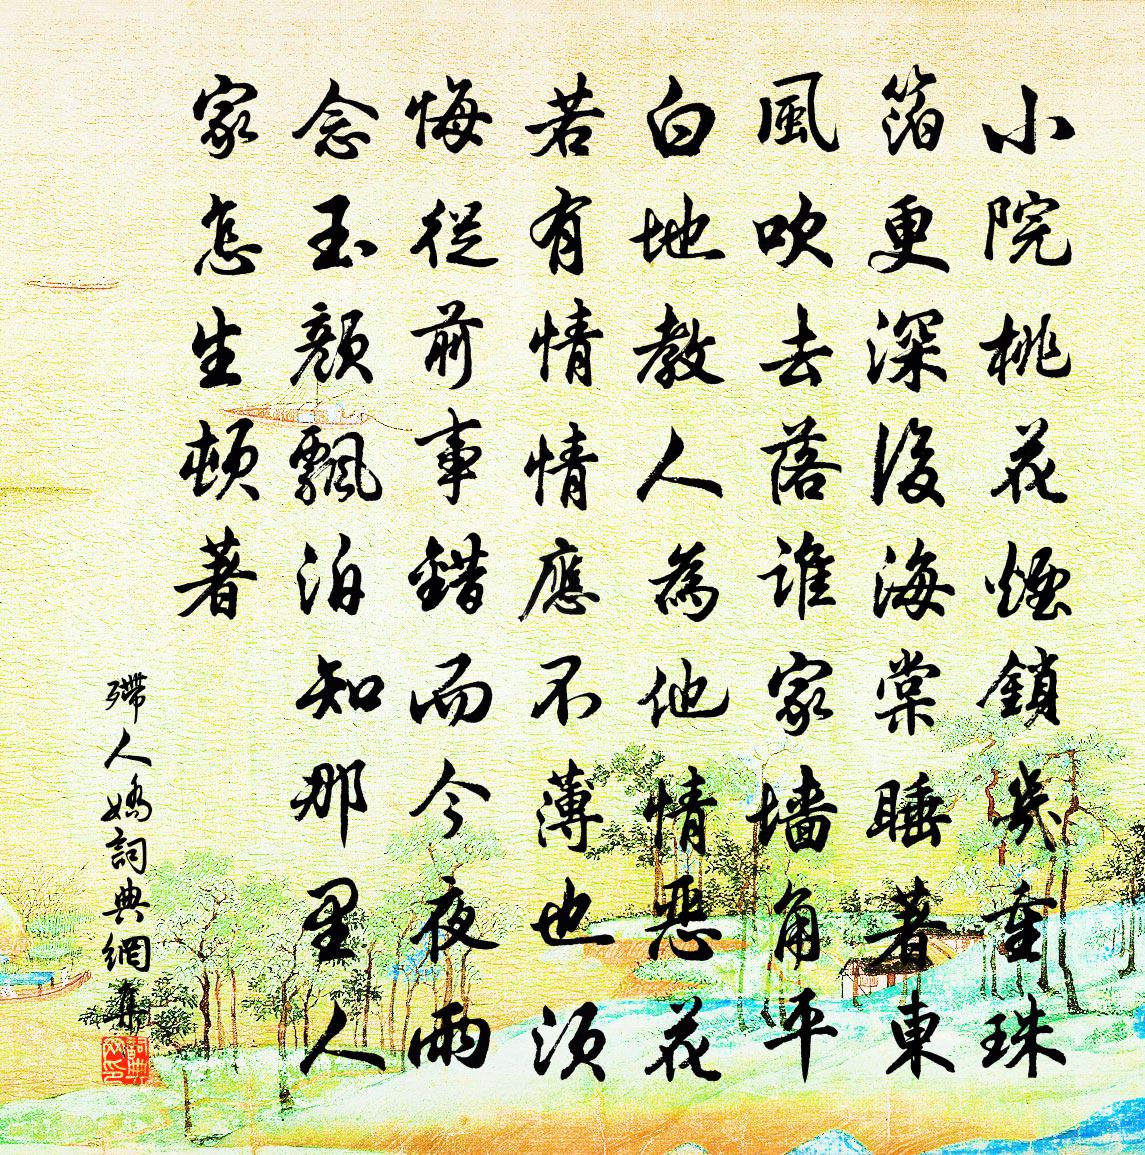 小院桃花煙鎖幾重珠
箔更深後海棠睡著東
風吹去落誰家墻角平
白地教人為他情惡花
若有情情應不薄也須
悔從前事錯而今夜雨
念玉顏飄泊知那里人
家怎生頓著
殢人嬌詞典網